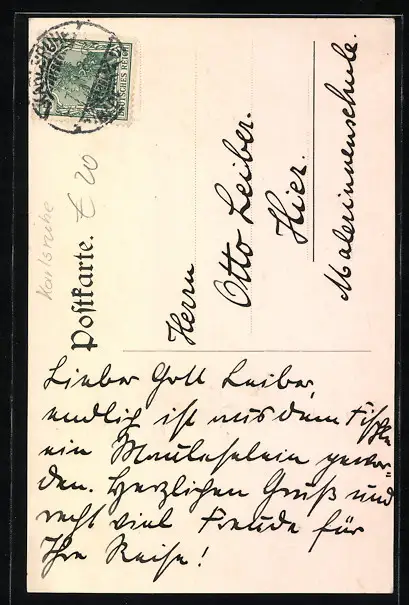 DEUTSCHES REICH
Karlsruhe
€ 20
Postkarte.
Herrn
Otto Leiber.
Hier.
Malerinnenschule.
Lieber Gott Leiber,
endlich ist aus dem Fischle
ein Mauleselein gewor-
den. Herzlichen Gruß und
recht viel Freude für
Ihre Reise!